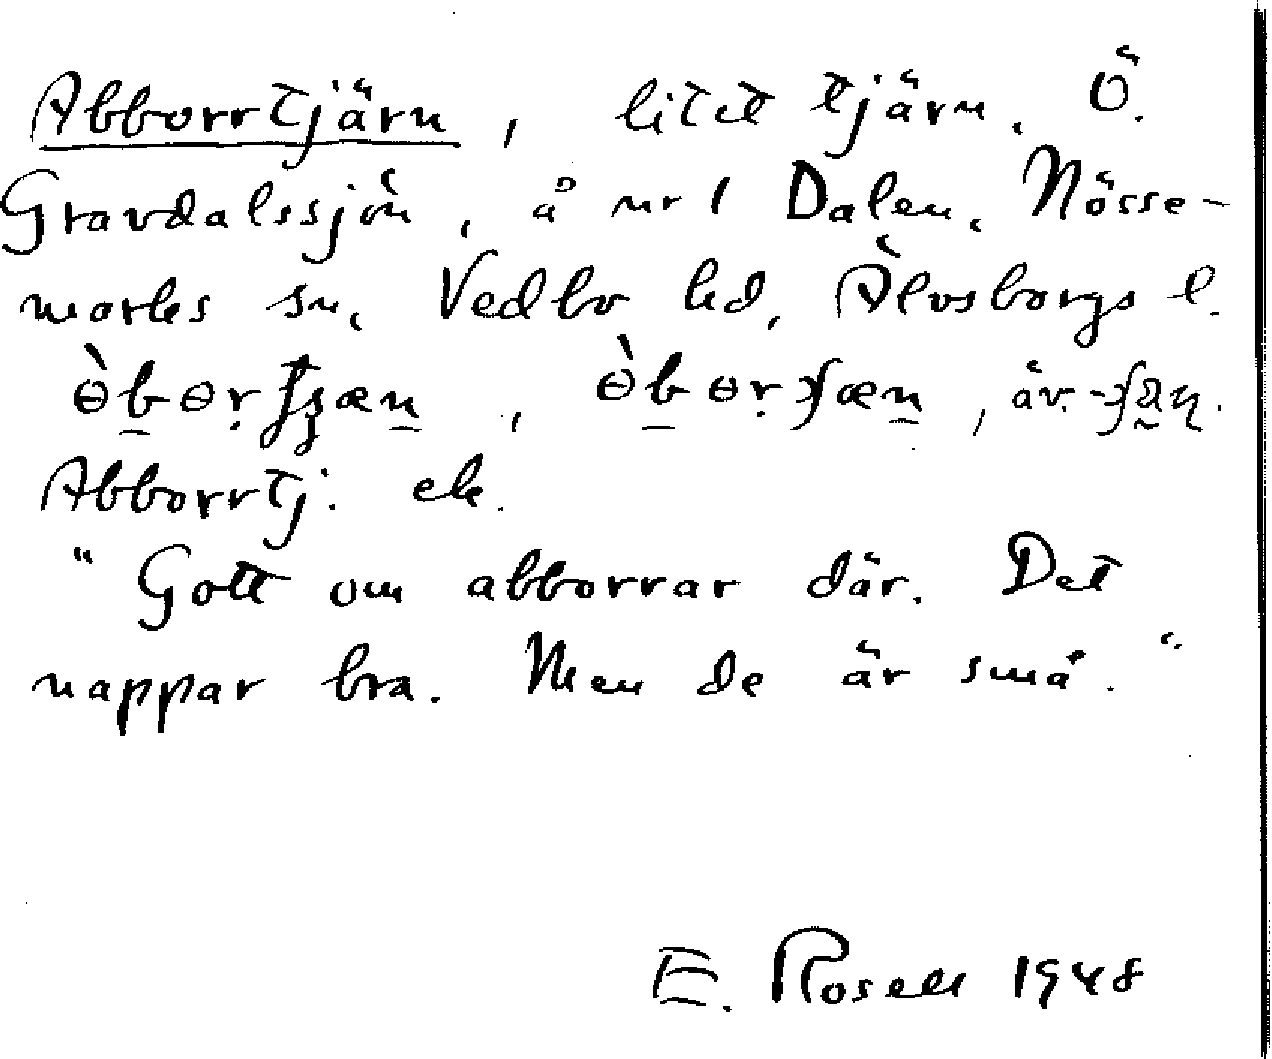 Abborrtjärn, litet tjärn, Ö.
Gravdalssjön, å nr 1 Dalen, Nösse-
marks sn, Vedbo hd, Älvsborgs l.
, äv.
Abborrtj. ek.
"Gott om abborrar där. Det
nappar bra. Men de är små."
E. Rosell 1948